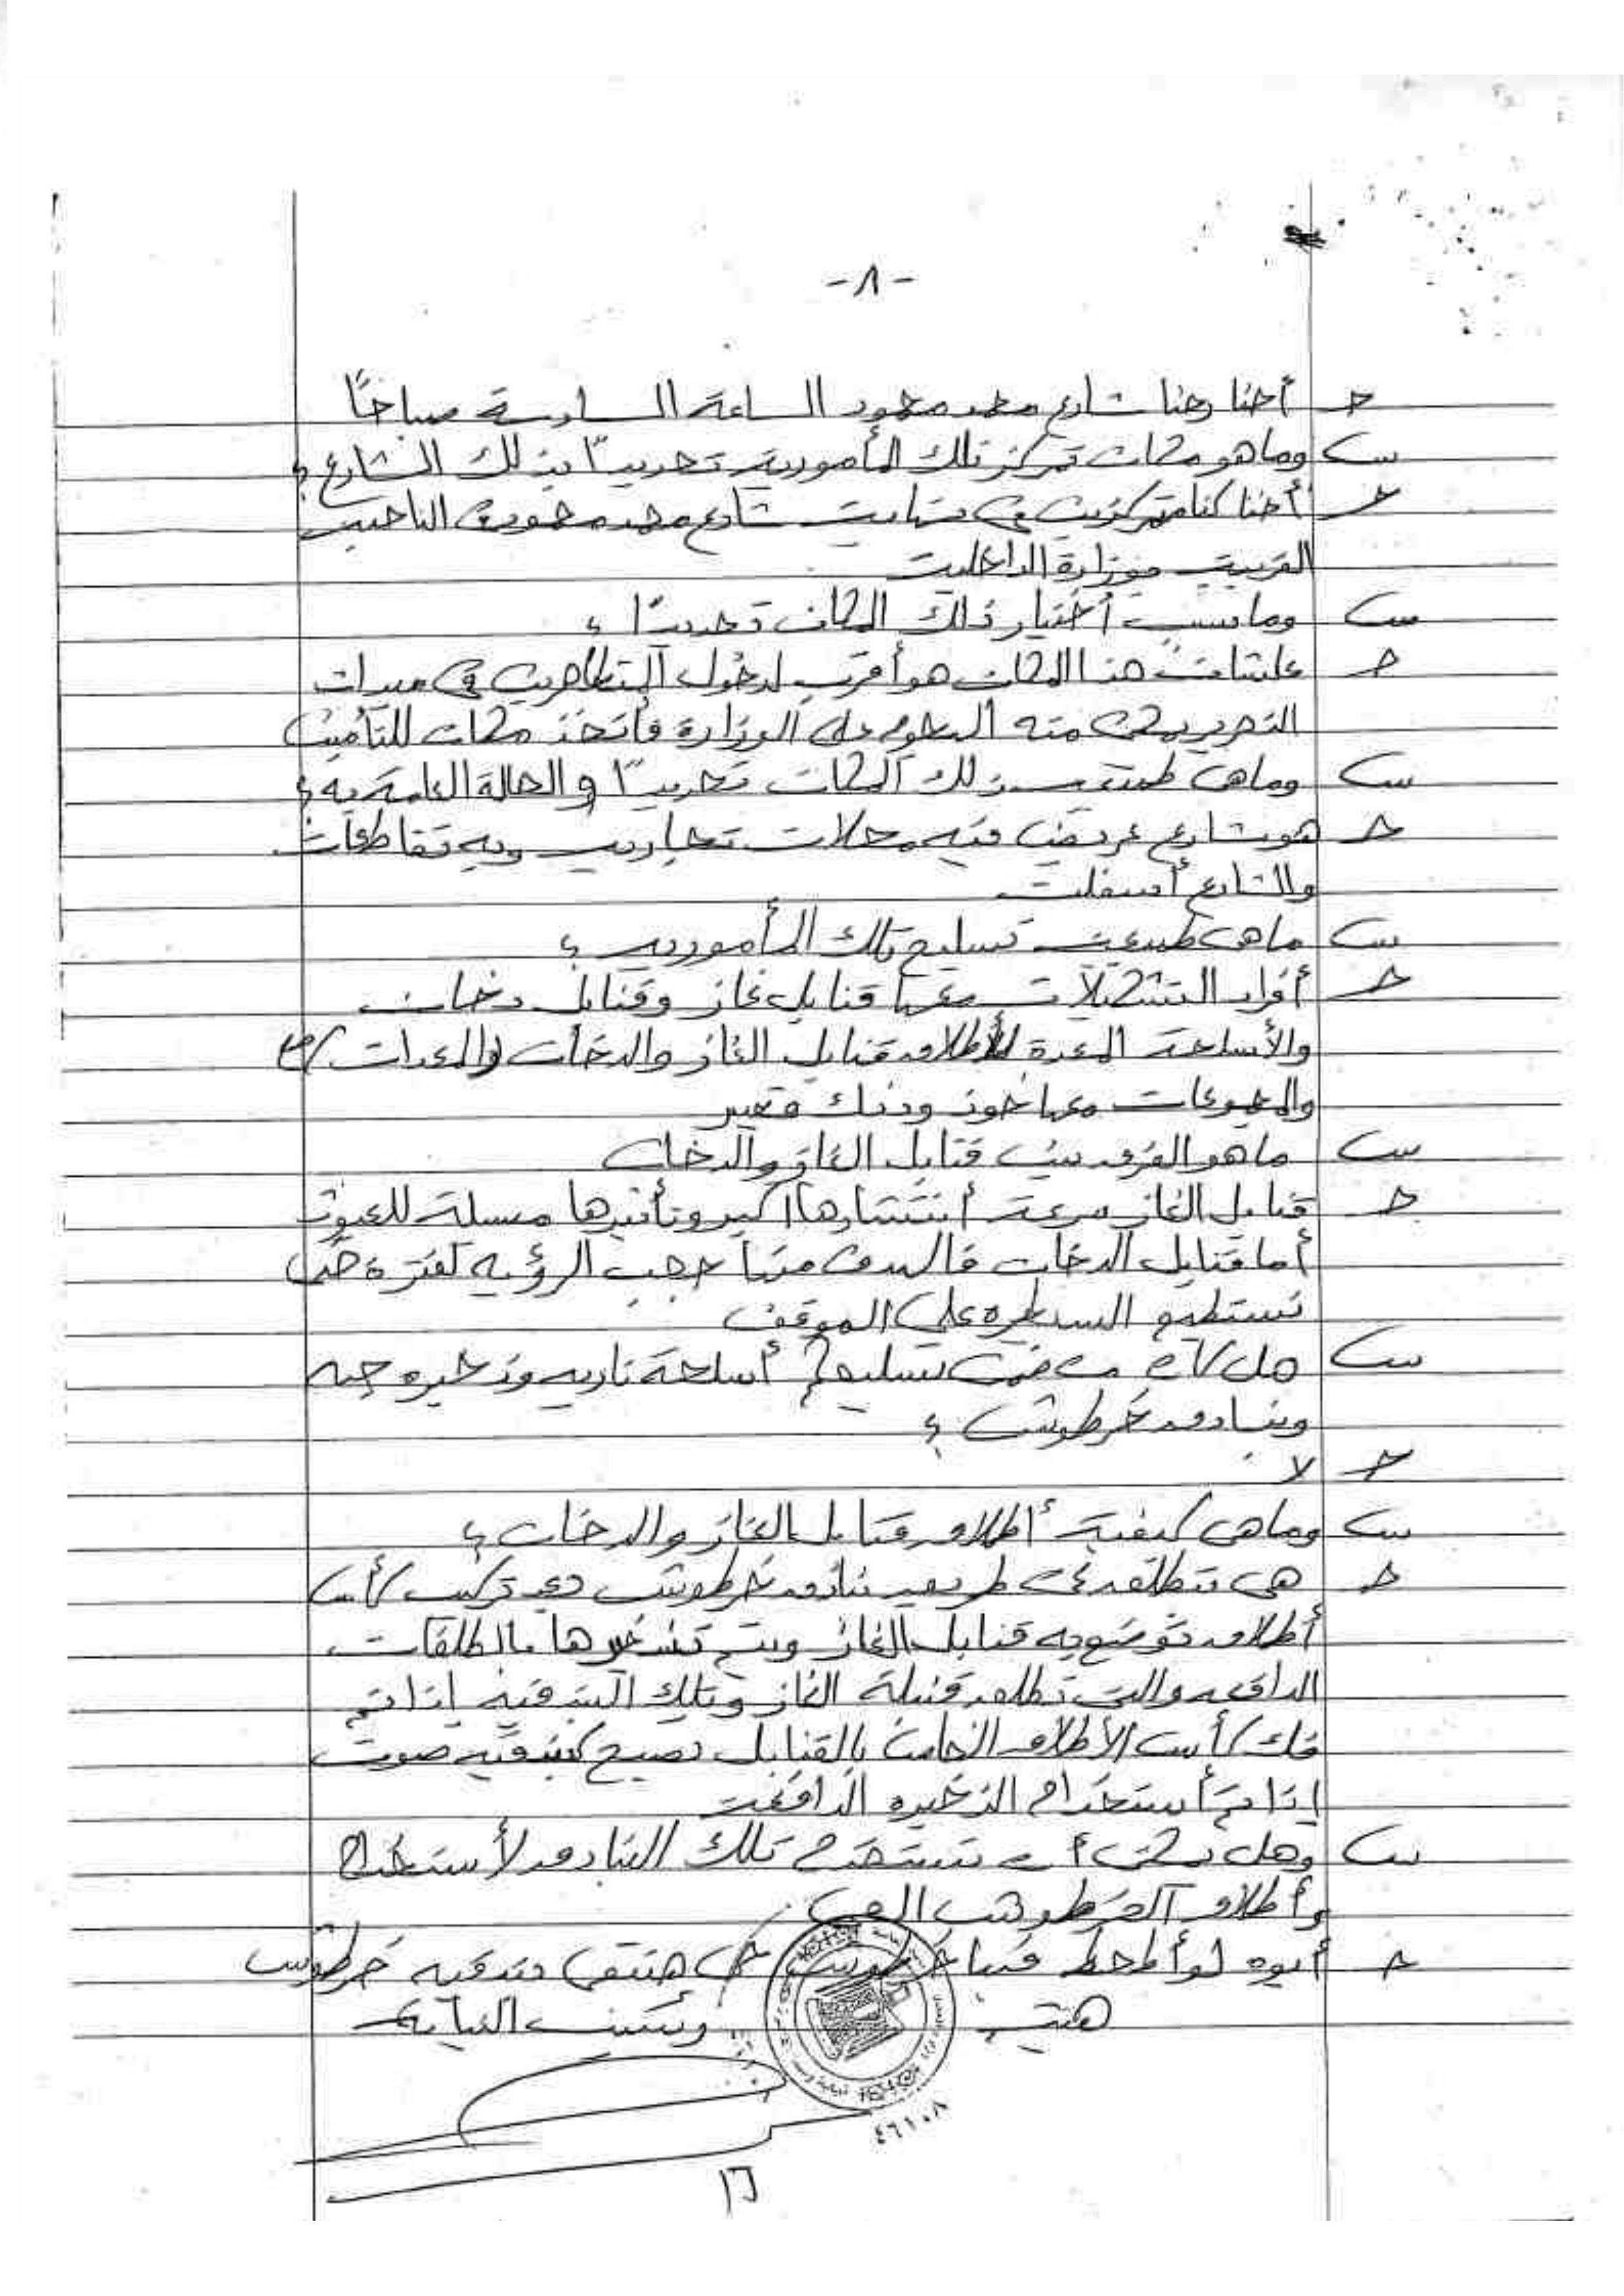 -٨-
ج أحنا رحنا شارع محمد محمود الساعة السادسة صباحًا
س وما هو مكان تمركز تلك المأمورية تحديدًا بذلك الشارع ؟
ج أحنا كنا متمركزين في نهايت شارع محمد محمود من الناحيه
القريبه من وزارة الداخليه
س وما سبب أختيار ذلك المكان تحديدًا ؟
ج علشان هذا المكان هو أقرب لدخول المتظاهرين في ميدان
التحرير يمكن منه الهجوم على الوزارة فأتخذ مكان للتأمين
س وما هي طبيعة ذلك المكان تحديدًا والحالة العامة به ؟
ج هو شارع عريض فيه محلات تجاريه وبه تقاطعات
والشارع أسفلت
س ما هي طبيعة تسليح تلك المأموريه ؟
ج أفراد التشكيلات معها قنابل غاز وقنابل دخان
والأسلحة المعدة لأطلاق قنابل الغاز والدخان والمعدات
والمجموعات معها خوذ ودنك
س ما هو الفرق بين قنابل الغاز والدخان
ج قنابل الغاز سرعة أنتشارها أكبر وتأثيرها مسيلة للعيون
أما قنابل الدخان فالهدف منها حجب الرؤيه لفترة حتى
نستطيع السيطره على الموقف
س هل كان من ضمن تسليحكم أسلحة ناريه وذخيره حيه
وبنادق خرطوش ؟
ج لا
س وما هي كيفية أطلاق قنابل الغاز والدخان ؟
ج هي تنطلق عن طريق بنادق خرطوش دي تركيب كأس
أطلاق توضع به قنابل الغاز ويتم تذخيرها بالطلقات
الدافعه والتي تطلق قنبلة الغاز وتلك البندقيه إذا تم
فك كأس الأطلاق الخاص بالقنابل تصبح كبندقيه صوت
إذا تم أستخدام الذخيره الدافعة
س وهل يمكن أن تستخدم تلك البنادق لأستخدام
وأطلاق الخرطوش الحي
ج أيوه لو أطحط فيها خرطوش حي هتبقى بندقيه خرطوش
هت ونثبت النيابة
٤٦١٠٨
١٦